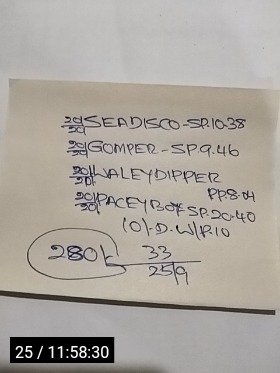 20/20 SEADISCO-SP.10.38
20/20 GOMPER-SP9.46
20/20 WALEYDIPPER
PP.8.04
20/20 PACEYBOY SP.20.40
(0/-D-W/R.10
280/- 33
25/9
25 / 11:58:30